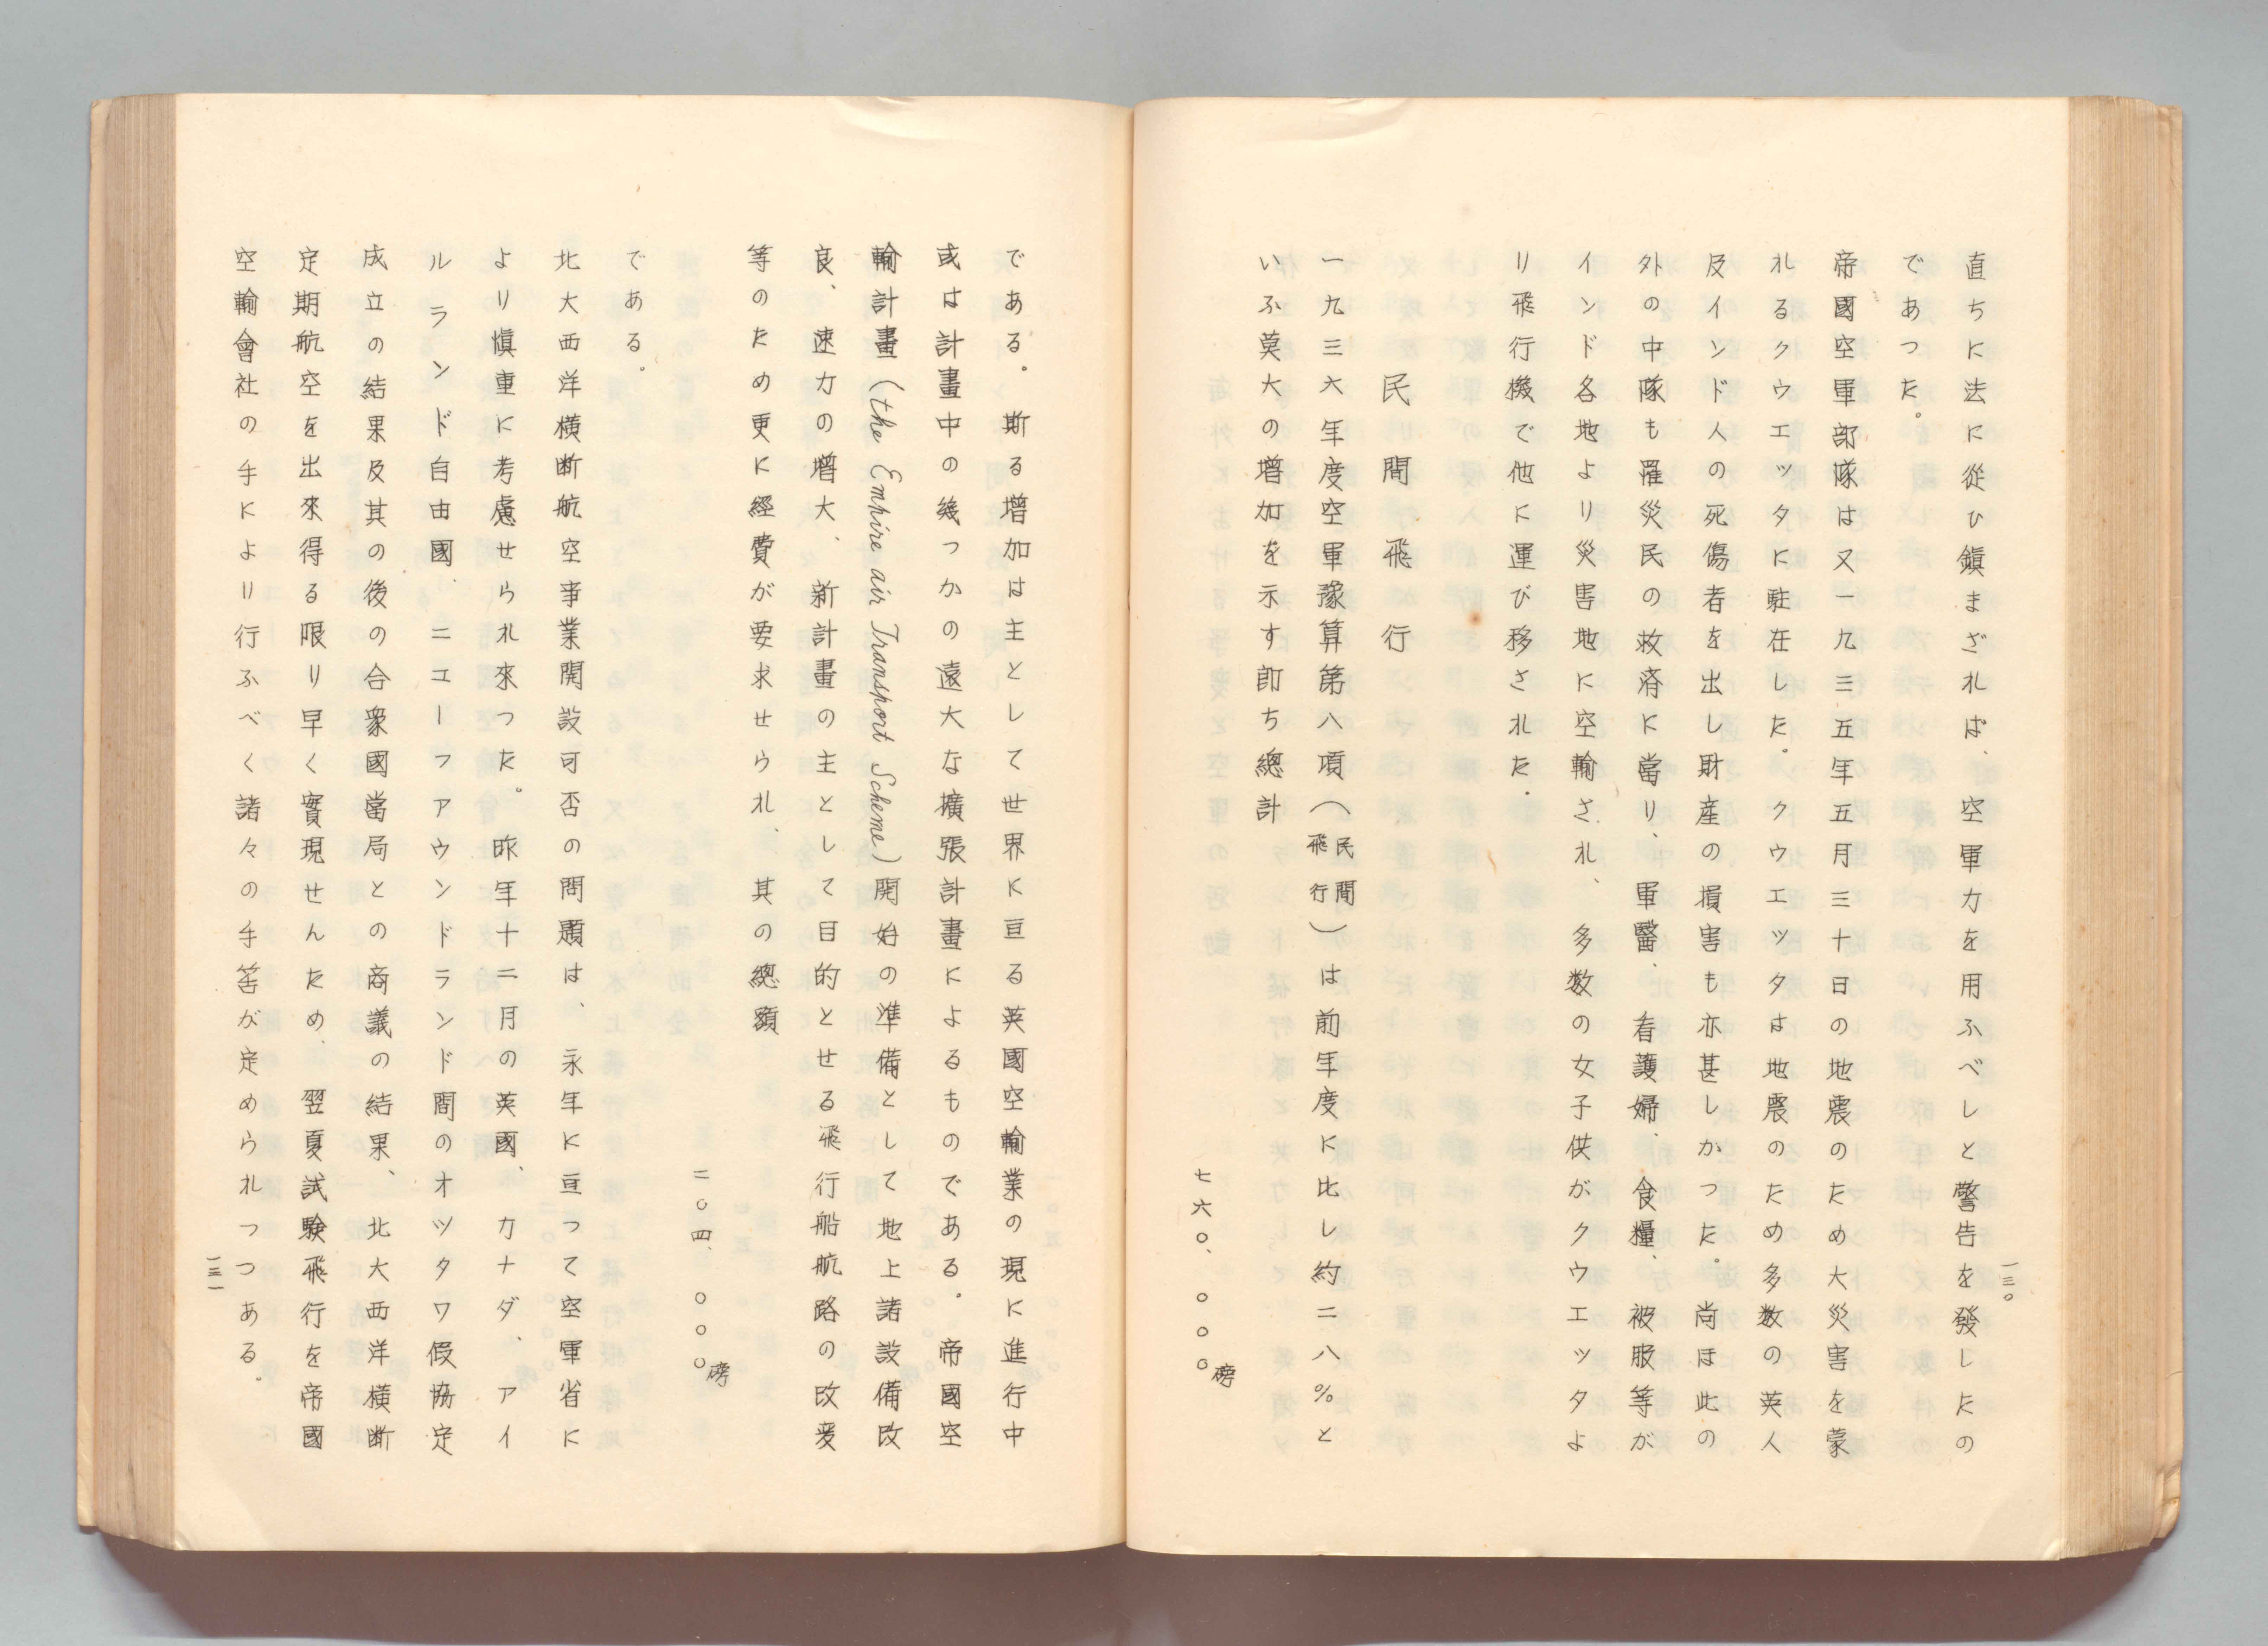 一三〇
直ちに法に從ひ鎭まざれば、空軍力を用ふべしと警告を發したの
であつた。
帝國空軍部隊は又一九三五年五月三十日の地震のため大災害を蒙
れるクウエツタに駐在した。クウエツタは地震のため多数の英人
及インド人の死傷者を出し財産の損害も亦甚しかつた。尚ほ此の
外の中隊も罹災民の救済に當り、軍醫、看護婦、食糧、被服等が
インド各地より災害地に空輸され、多数の女子供がクウエツタよ
り飛行機で他に運び移された.
民間飛行
一九三六年度空軍豫算第八項(民間飛行)は前年度に比し約二八%と
いふ莫大の増加を示す卽ち總計
七六〇、〇〇〇磅
である。斯る増加は主として世界に亘る英國空輸業の現に進行中
或は計畫中の幾つかの遠大な擴張計畫によるものである。帝國空
輸計畫(the Empire air Transport Scheme)開始の準備として地上諸設備改
良、速力の増大、新計畫の主として目的とせる飛行船航路の改変
等のため更に經費が要求せられ、其の總額
二〇四、〇〇〇磅
である。
北大西洋横断航空事業開設可否の問題は、永年に亘つて空軍省に
より愼重に考慮せられ來つた。昨年十二月の英國、カナダ、アイ
ルランド自由國、ニユーフアウンドランド間のオツタワ假協定
成立の結果及其の後の合衆國當局との商議の結果、北大西洋横断
定期航空を出來得る限り早く實現せんため、翌夏試験飛行を帝國
空輸會社の手により行ふべく諸々の手筈が定められつつある。
一三一